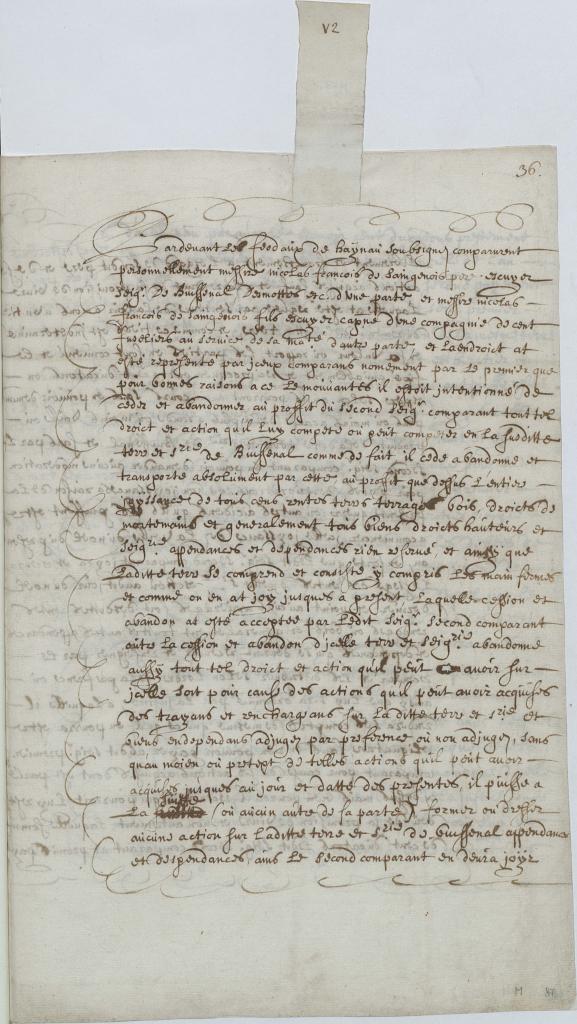 V2
36.
Pardeuant les feodaux de haÿnau soubsignez comparurent
personnellement messire nicolas francois de saingenois pere escuyer
seigr. De Buissenal Desmottes etc. d'une parte et messire nicolas
francois de saingenois fils escuyer capne d'une compagnie de cent
fuseliers au service de sa mate d'autre parte et Laendroict at
esté representé par jceux comparans nomement par Le premier que
pour bonnes raisons a ce Le mouuantes il estoit intentionné de
ceder et abandonner au proffit du second seigr. comparant tout tel
droict et action qu'il Luy compete ou peut competer en La suditte
terre et srie de Buissenal comme de fait il cede abandonne et
transporte absolument par cette au proffit que dessus L'entiere
jouyssance de tous cens rentes terres terrages bois, droicts de
mortemains et generalement tous biens droicts hauteurs et
seigrie appendances et dependances rien reserué et ainsy que
Laditte terre se comprend et consiste y compris Les main fermes
et comme on en at joy jusques a present Laquelle cession et
abandon at esté acceptee par Ledit seigr. second comparant
outre La cession et abandon d'jcelle terre et seigrie abandonne
aussy tout tel droict et action qu'il peut avoir sur
jcelle soit pour cause des actions qu'il peut avoir acquises
des trayans et renchargeans sur Laditte terre et srie et
biens endependans adjugez par preference ou non adjugez, sans
qu'au moien ou pretext de telles actions qu'il peut avoir
acquises jusques au jour et datte des presentes, il puisse a
La suitte (ou aucun autre de sa parte) former ou dresser
aucune action sur Laditte terre et srie de buissenal appendances
et despendances, ains Le second comparant en deura joÿr
M 87